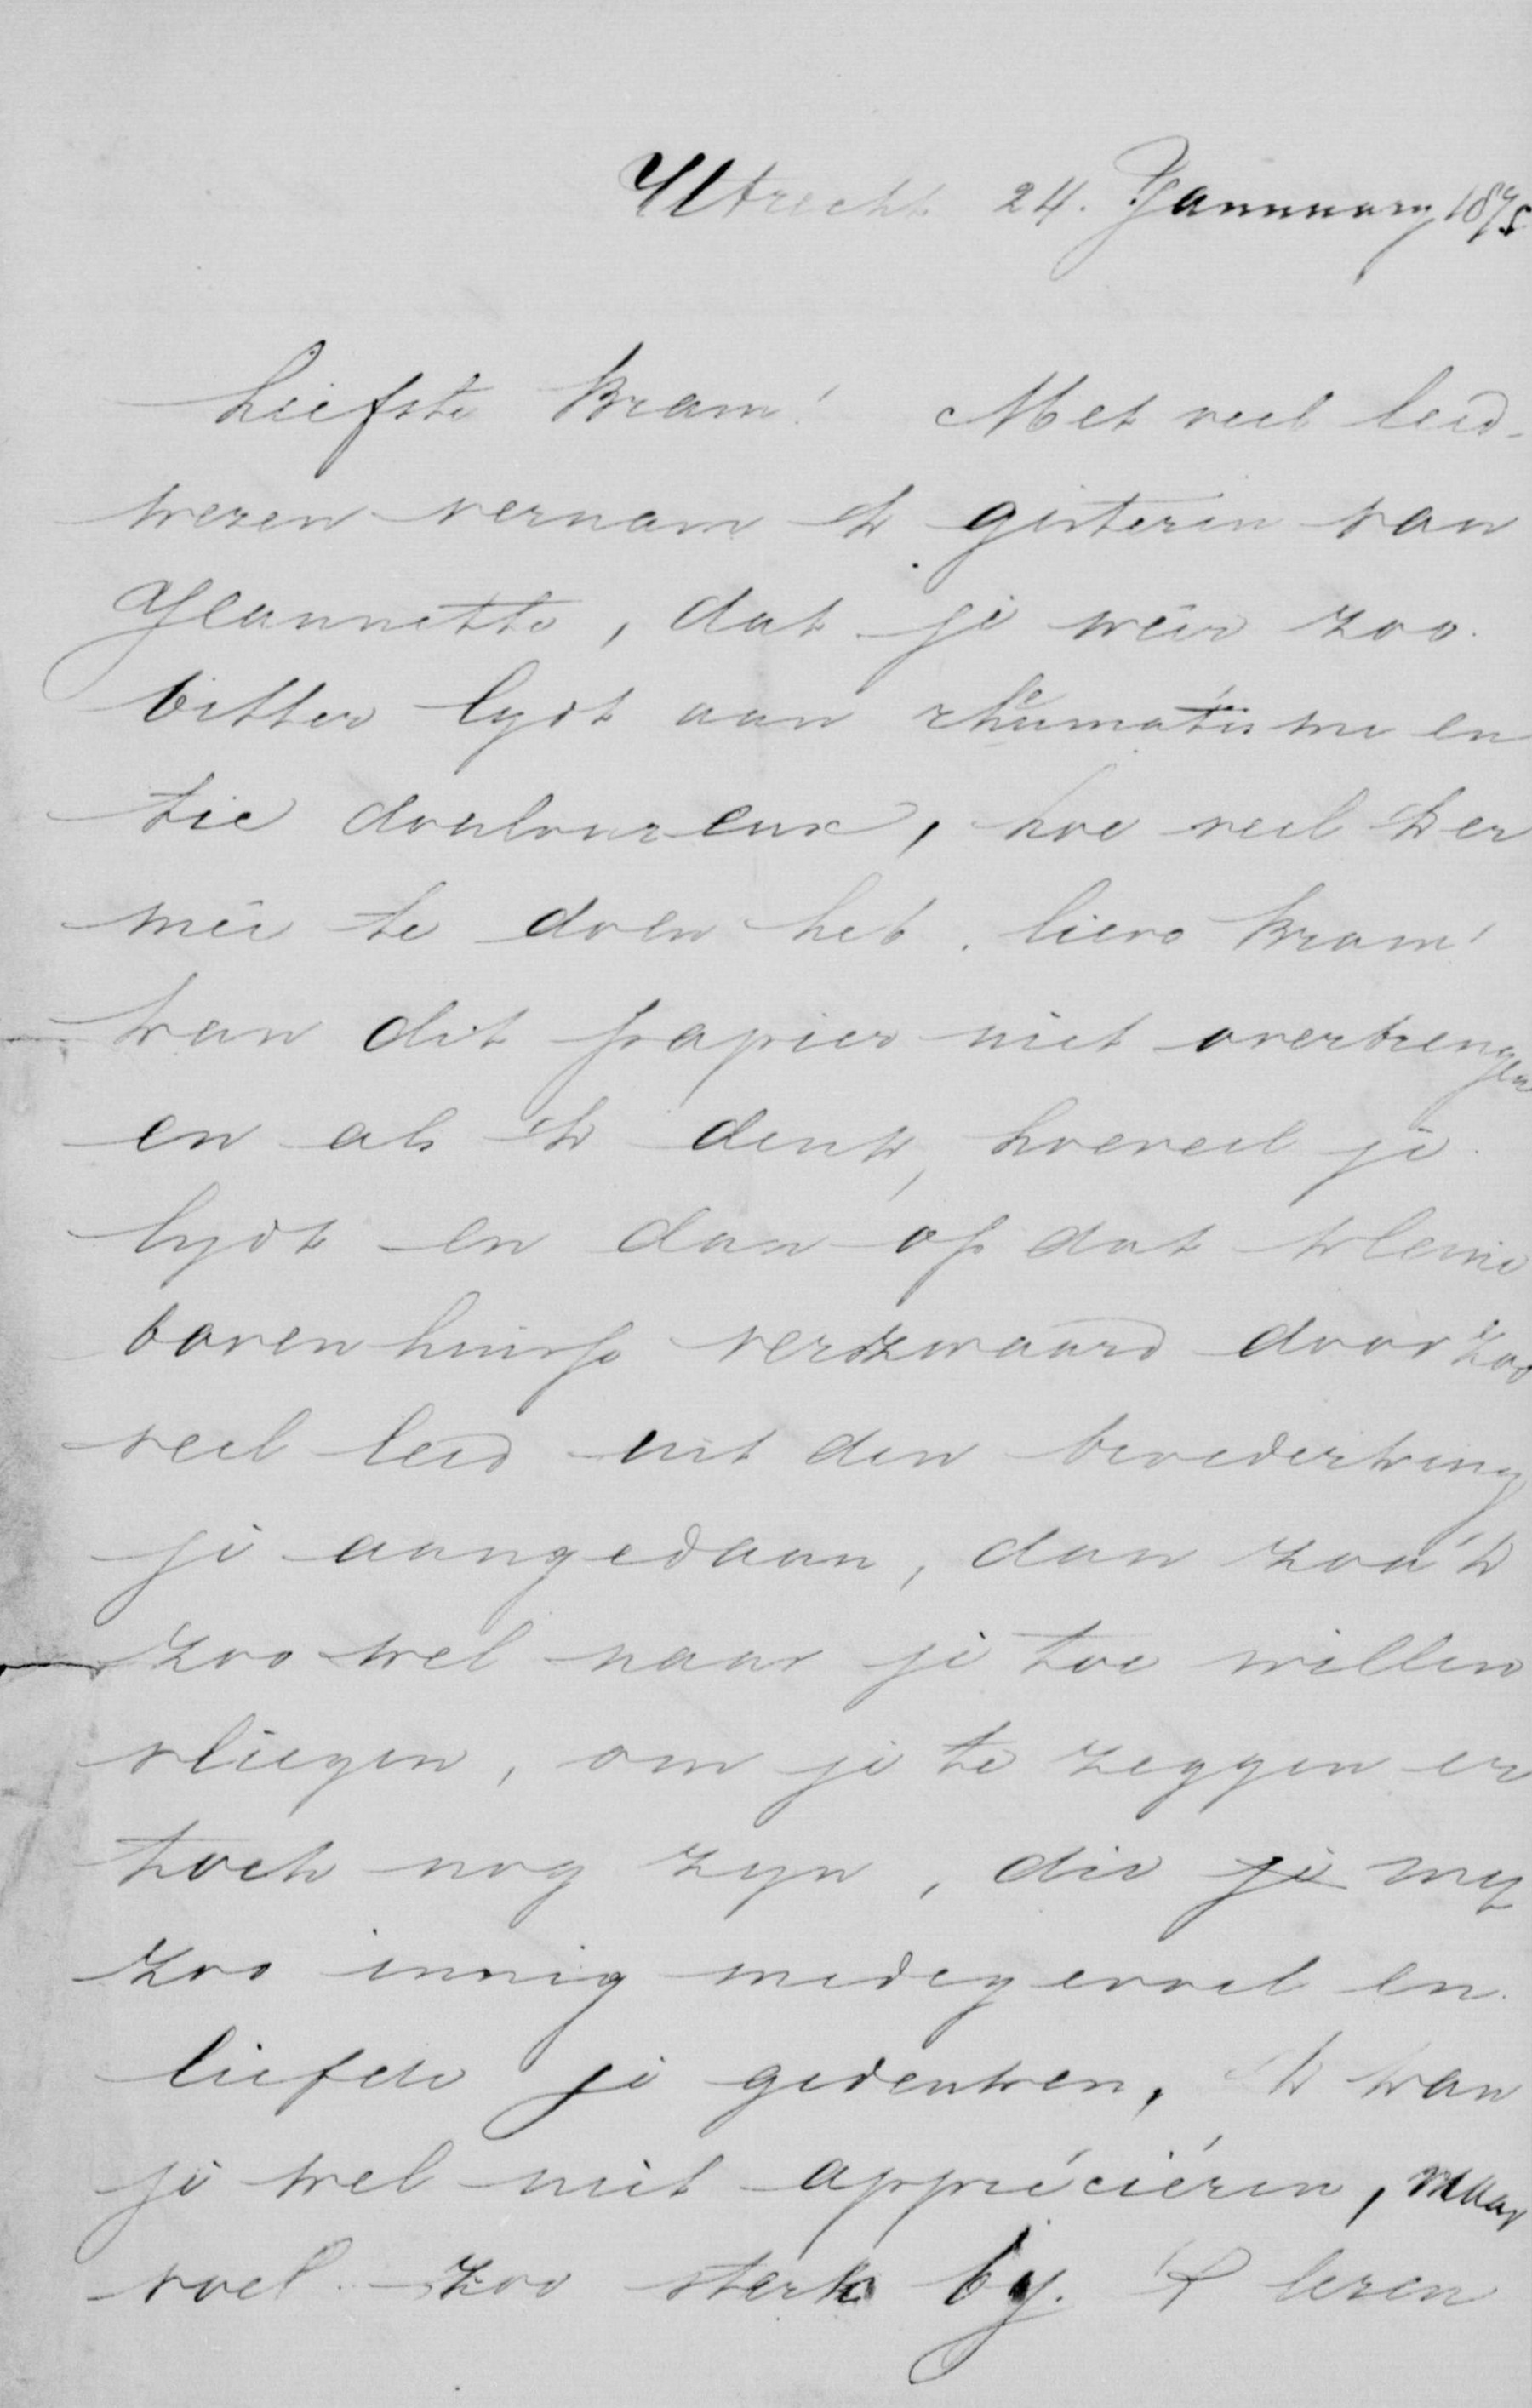 Utrecht 24. January 1895
Liefste Bram! Met veel leed-
wezen vernam ik gisteren van
Jeannette, dat je wéér zoo
bitter lydt aan rheumatisme en
tic douloureux, hoe veel 'k er
meê te doen heb, lieve Bram!
kan dit papier niet overbrengen
en als ik denk, hoeveel je
lydt en dan op dat kleine
bovenhuisje verzwaard door zoo
veel leed uit den broederkring
je aangedaan, dan zou 'k
zoo wel naar je toe willen
vliegen, om je te zeggen er
toch nog zyn, die je my
zoo innig medegevoel en
liefde je gedenken, 'k kan
je wel niet appréciéren, maar
voel zoo sterk by 't lezen